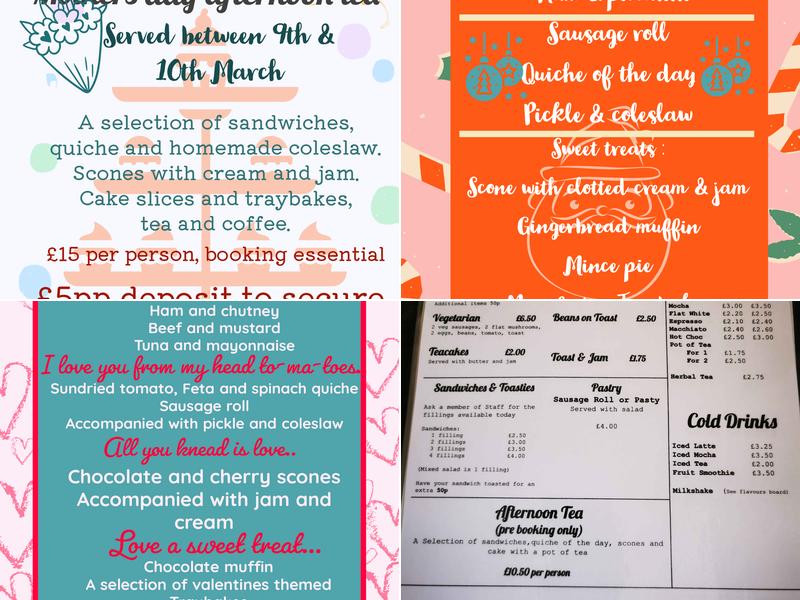 Mothers day afternoon tea
Served between 9th &
10th March
A selection of sandwiches,
quiche and homemade coleslaw.
Scones with cream and jam.
Cake slices and traybakes,
tea and coffee.
£15 per person, booking essential
£5pp deposit to secure
Sausage roll
Quiche of the day
Pickle & coleslaw
Sweet treats :
Scone with clotted cream & jam
Gingerbread muffin
Mince pie
Ham and chutney
Beef and mustard
Tuna and mayonnaise
I love you from my head to-ma-toes..
Sundried tomato, Feta and spinach quiche
Sausage roll
Accompanied with pickle and coleslaw
All you knead is love..
Chocolate and cherry scones
Accompanied with jam and
cream
Love a sweet treat...
Chocolate muffin
A selection of valentines themed
Traybakes
Additional items 50p
Vegetarian £6.50
2 veg sausages, 2 flat mushrooms,
2 eggs, beans, tomato, toast
Beans on Toast £2.50
Teacakes £2.00
Served with butter and jam
Toast & Jam £1.75
Sandwiches & Toasties
Ask a member of Staff for the
fillings available today
Sandwiches:
1 filling £2.50
2 fillings £3.00
3 fillings £3.50
4 fillings £4.00
(Mixed salad is 1 filling)
Have your sandwich toasted for an
extra 50p
Pastry
Sausage Roll or Pasty
Served with salad
£4.00
Afternoon Tea
(pre booking only)
A Selection of sandwiches,quiche of the day, scones and
cake with a pot of tea
£10.50 per person
Mocha £3.00 £3.50
Flat White £2.20 £2.50
Espresso £2.10 £2.40
Macchiato £2.40 £2.60
Hot Choc £2.50 £3.00
Pot of Tea
For 1 £1.75
For 2 £2.50
Herbal Tea £2.75
Cold Drinks
Iced Latte £3.25
Iced Mocha £3.50
Iced Tea £2.00
Fruit Smoothie £3.50
Milkshake (See flavours board)